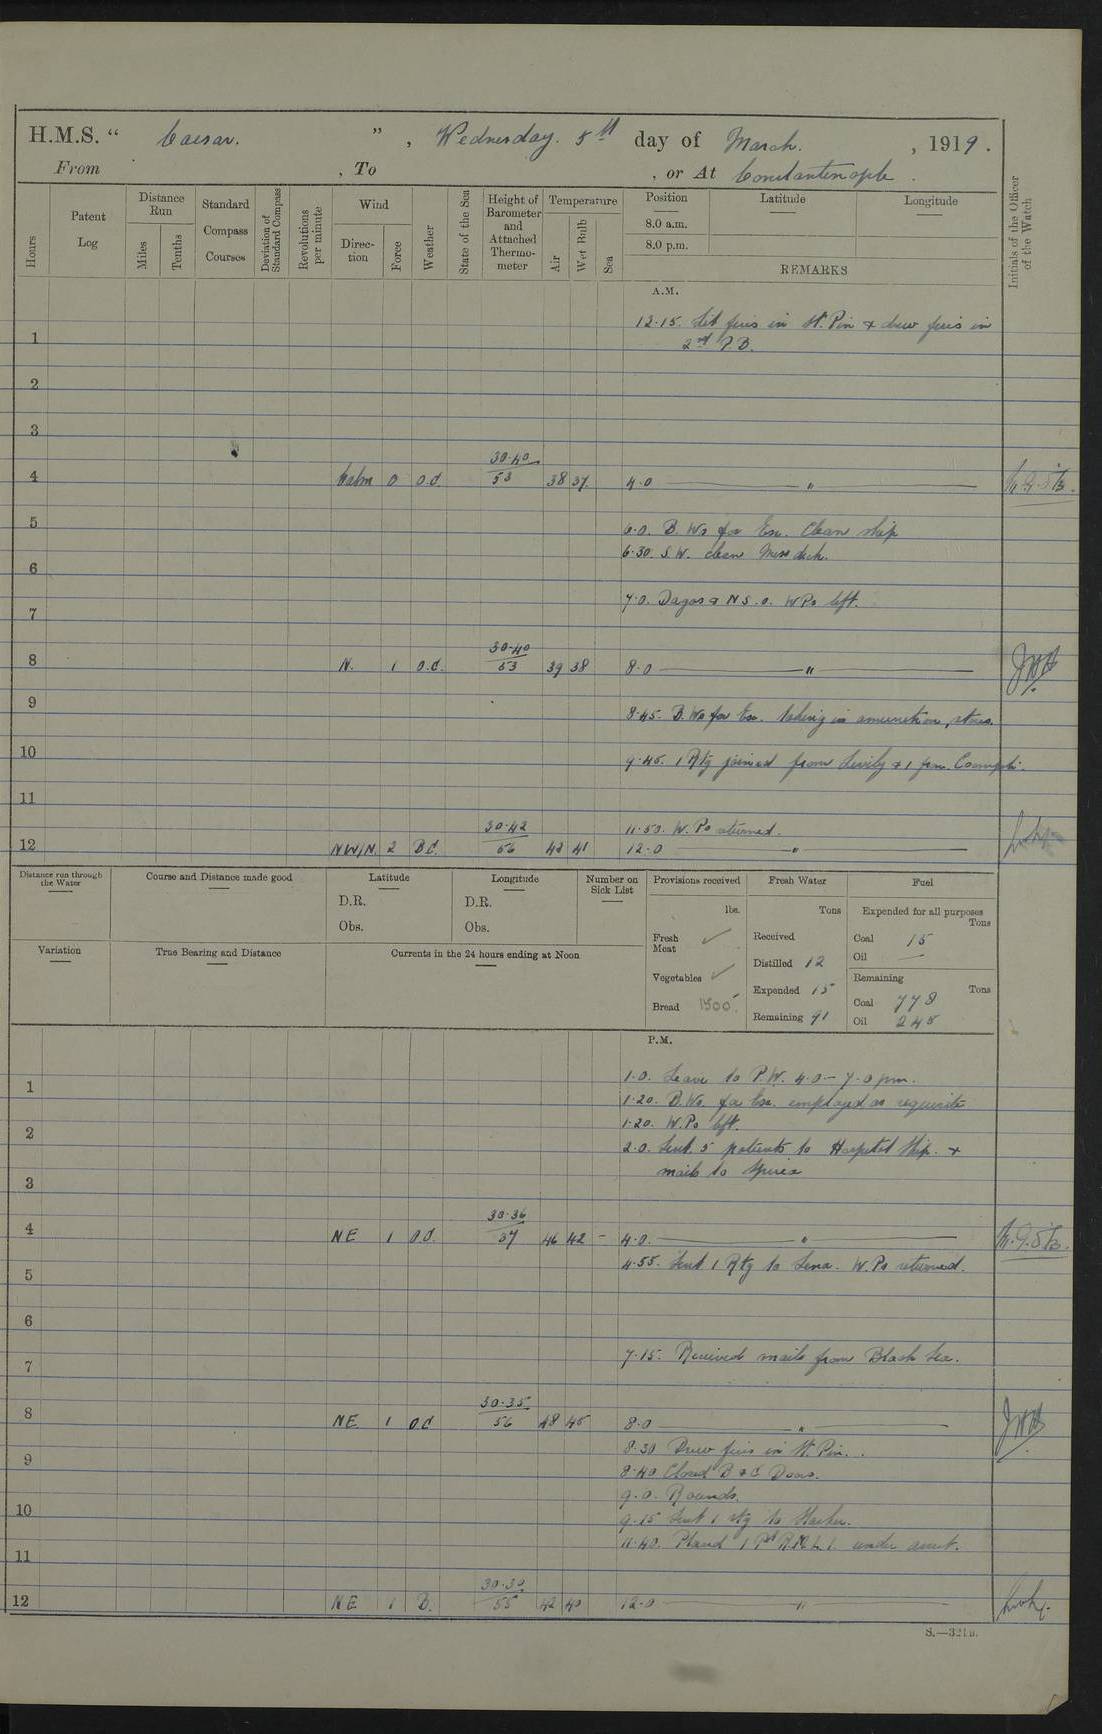 H.M.S. " Caesar. ", Wednesday. 5th day of March. , 1919.
From , To , or At Constantinople.
Hours
Patent Log
Distance Run
Miles
Tenths
Standard Compass Courses
Deviation of Standard Compass
Revolutions per minute
Wind
Direction
Force
Weather
State of the Sea
Height of Barometer and Attached Thermometer
Temperature
Air
Wet Bulb
Sea
Position Latitude Longitude
8.0 a.m.
8.0 p.m.
REMARKS
Initials of the Officer of the Watch
A.M.
12.15. Lit fires in St. Pin & drew fires in
1
2nd P.B.
2
3
30.40
4 Calm 0 O.C. 53 38 37 4.0 "
5 6.0. B.Ws for Ex. Clean ship
6.30. S.W. clean Mess deck.
6
7.0. & N.S.O. W.Ps left.
7
30.40
8 N. 1 O.C. 53 39 38 8.0 "
9 8.45. B.Ws for Ex. taking in amunition, stores.
10 9.45. 1 Rtg joined from & 1 from
11
30.42 11.50. W.Ps returned.
12 NW/N. 2 BC. 56 42 41 12.0 "
Distance run through the Water
Course and Distance made good
Latitude
D.R.
Obs.
Longitude
D.R.
Obs.
Number on Sick List
Provisions received
lbs.
Fresh Meat ✓
Vegetables ✓
Bread 1500.
Fresh Water
Tons
Received
Distilled 12
Expended 15
Remaining 91
Fuel
Expended for all purposes
Tons
Coal 15
Oil —
Remaining
Tons
Coal 778
Oil 245
Variation
True Bearing and Distance
Currents in the 24 hours ending at Noon
P.M.
1 1.0. Leave to P.W. 4.0 – 7.0 pm.
1.20. B.Ws. for Ex. employed as requisite
2 1.20. W.Ps left.
2.0. Sent 5 patients to Hospital Ship. &
3 mails to Spirea
30.36
4 NE 1 OC. 57 46 42 – 4.0. "
5 4.55. Sent 1 Rtg to Lena. W.Ps returned.
6
7 7.15. Received mails from Black Sea.
30.35
8 NE 1 OC 56 48 45 8.0 "
8.30 Drew fires in St. Pin.
9 8.40 Closed B & C Doors.
9.0. Rounds.
10 9.15 Sent 1 rtg to
11 11.40. Placed 1 Pte R.M.L.I. under arrest.
30.30
12 NE 1 B. 55 42 40 12.0 "
S.—321B.